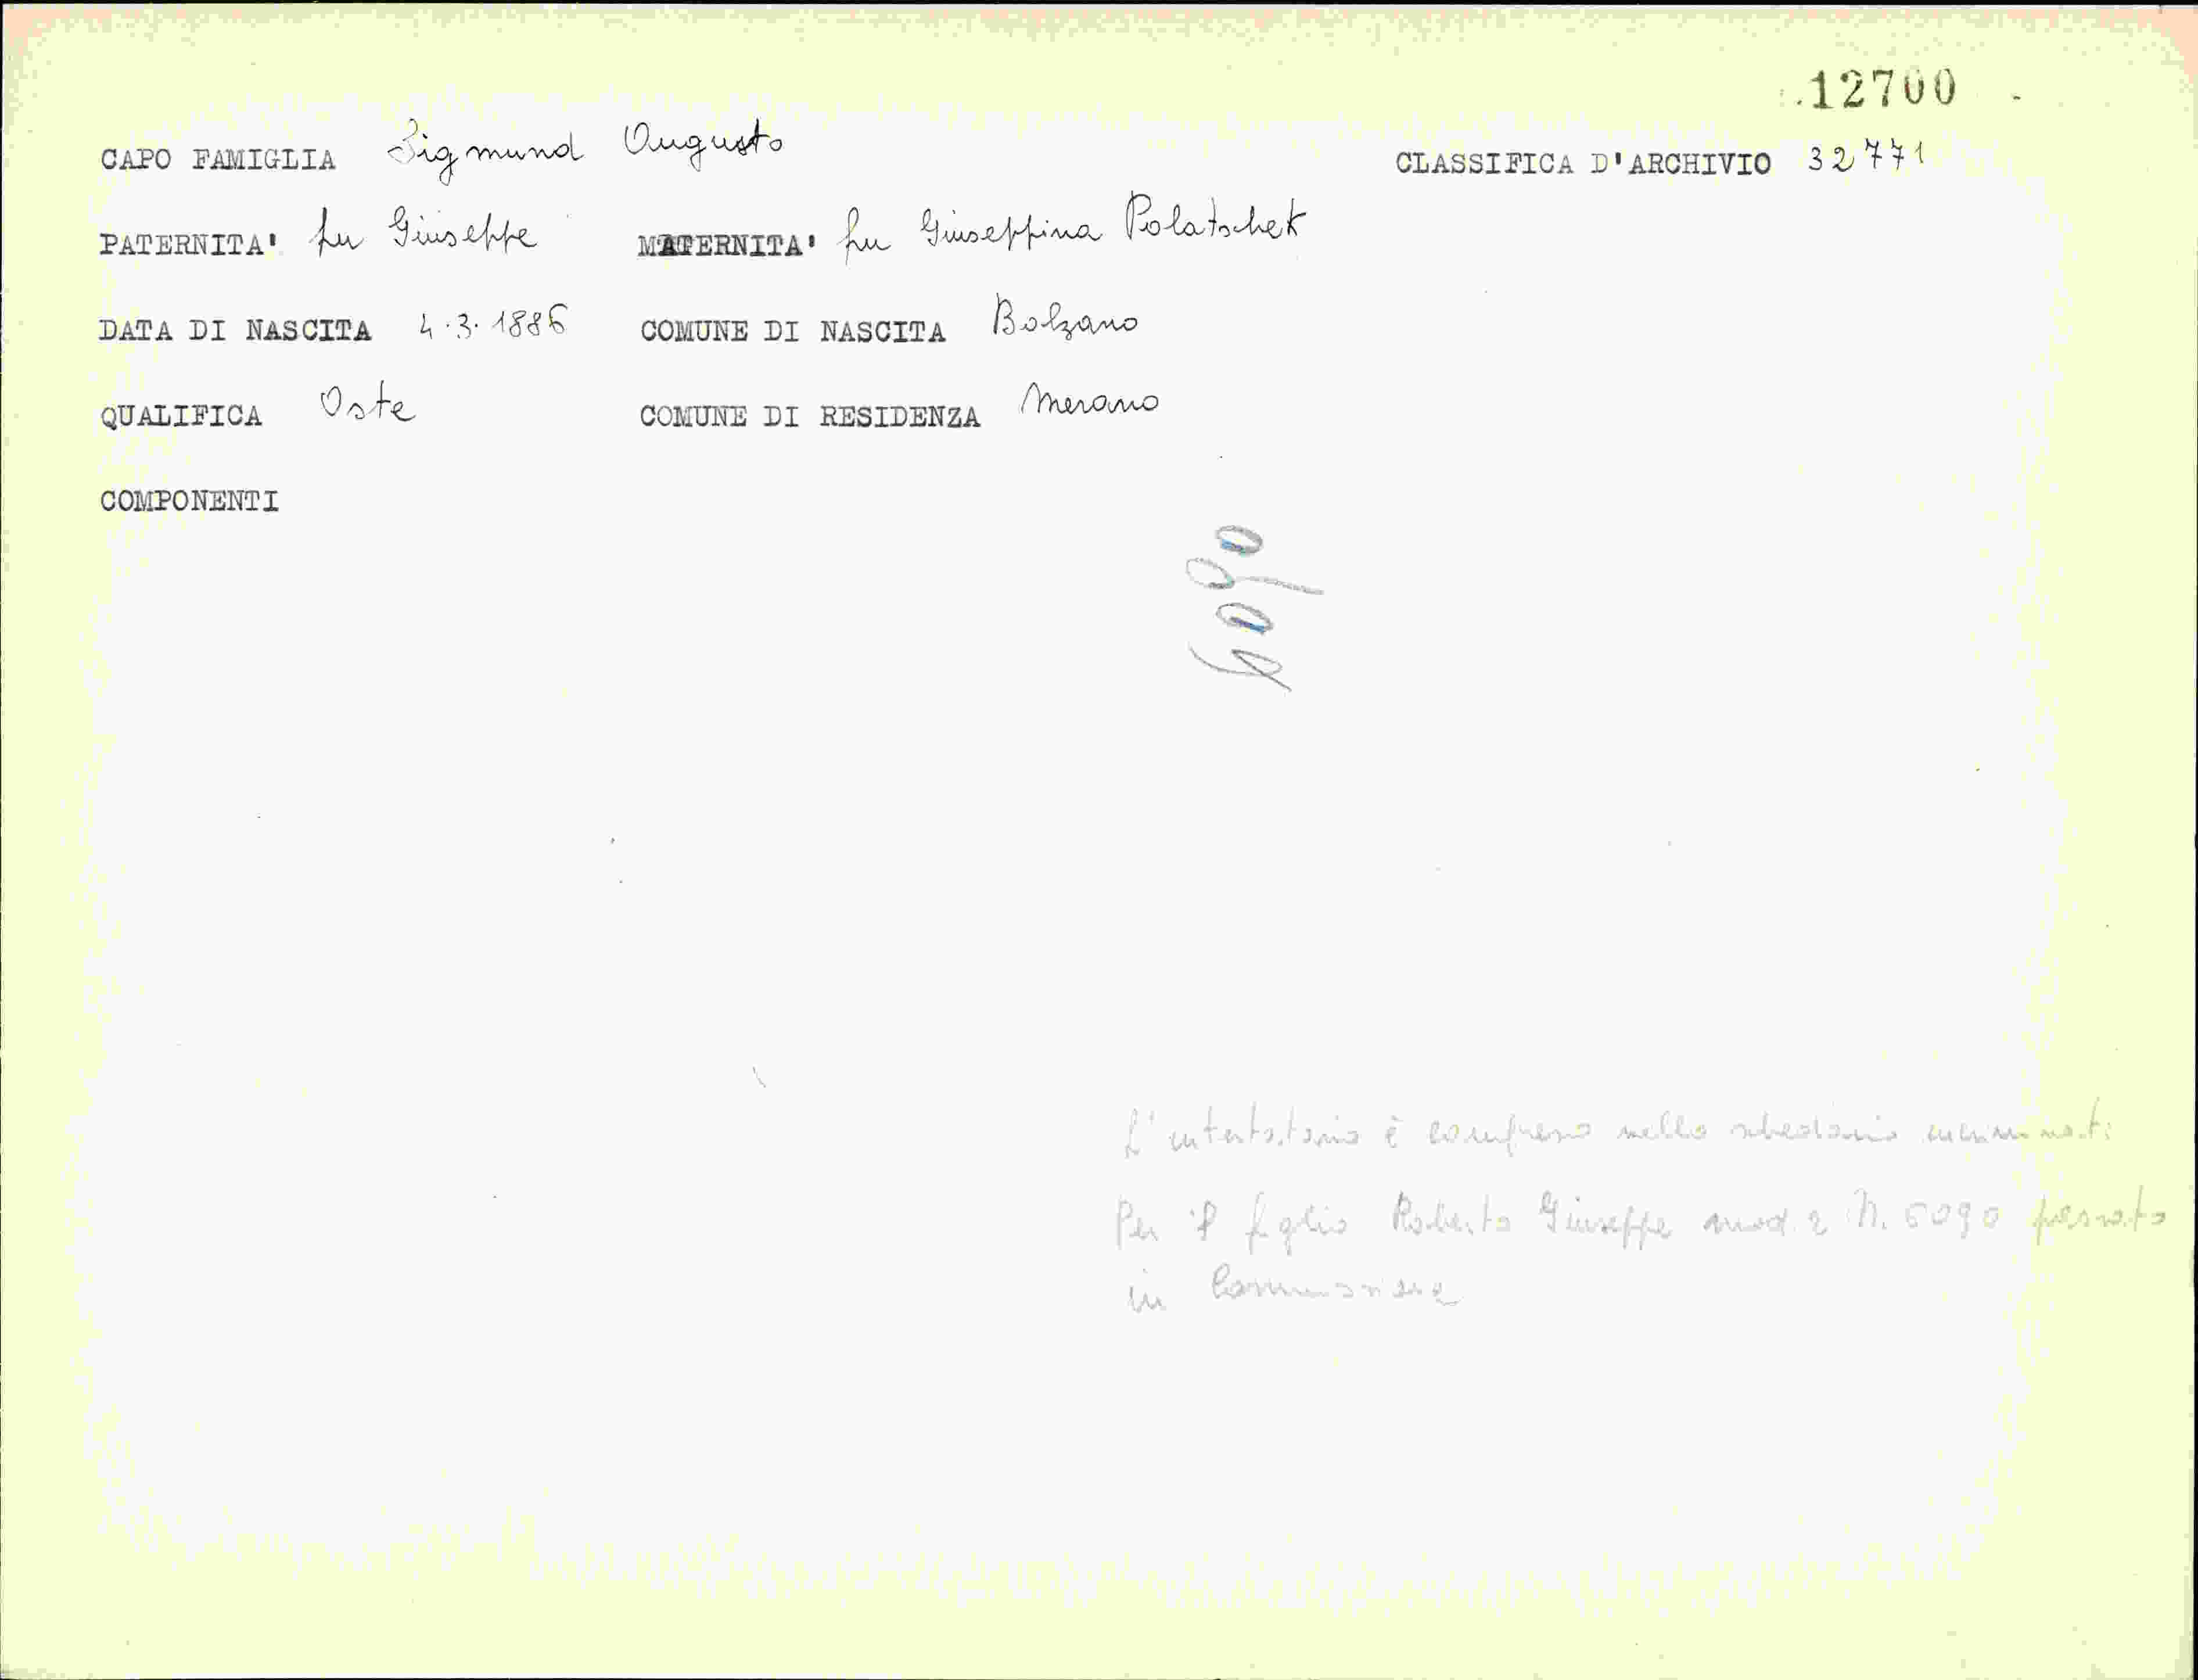 .12700
CAPO FAMIGLIA Sigmund Augusto CLASSIFICA D'ARCHIVIO 32771
PATERNITA' fu Giuseppe MATERNITA' fu Giuseppina Polatschek
DATA DI NASCITA 4.3.1886 COMUNE DI NASCITA Bolzano
QUALIFICA Oste COMUNE DI RESIDENZA Merano
COMPONENTI
6090
L'intestatario è compreso nello schedario
Per il figlio Roberto Giuseppe mod. 2 N. 6090 passato
in Commissione